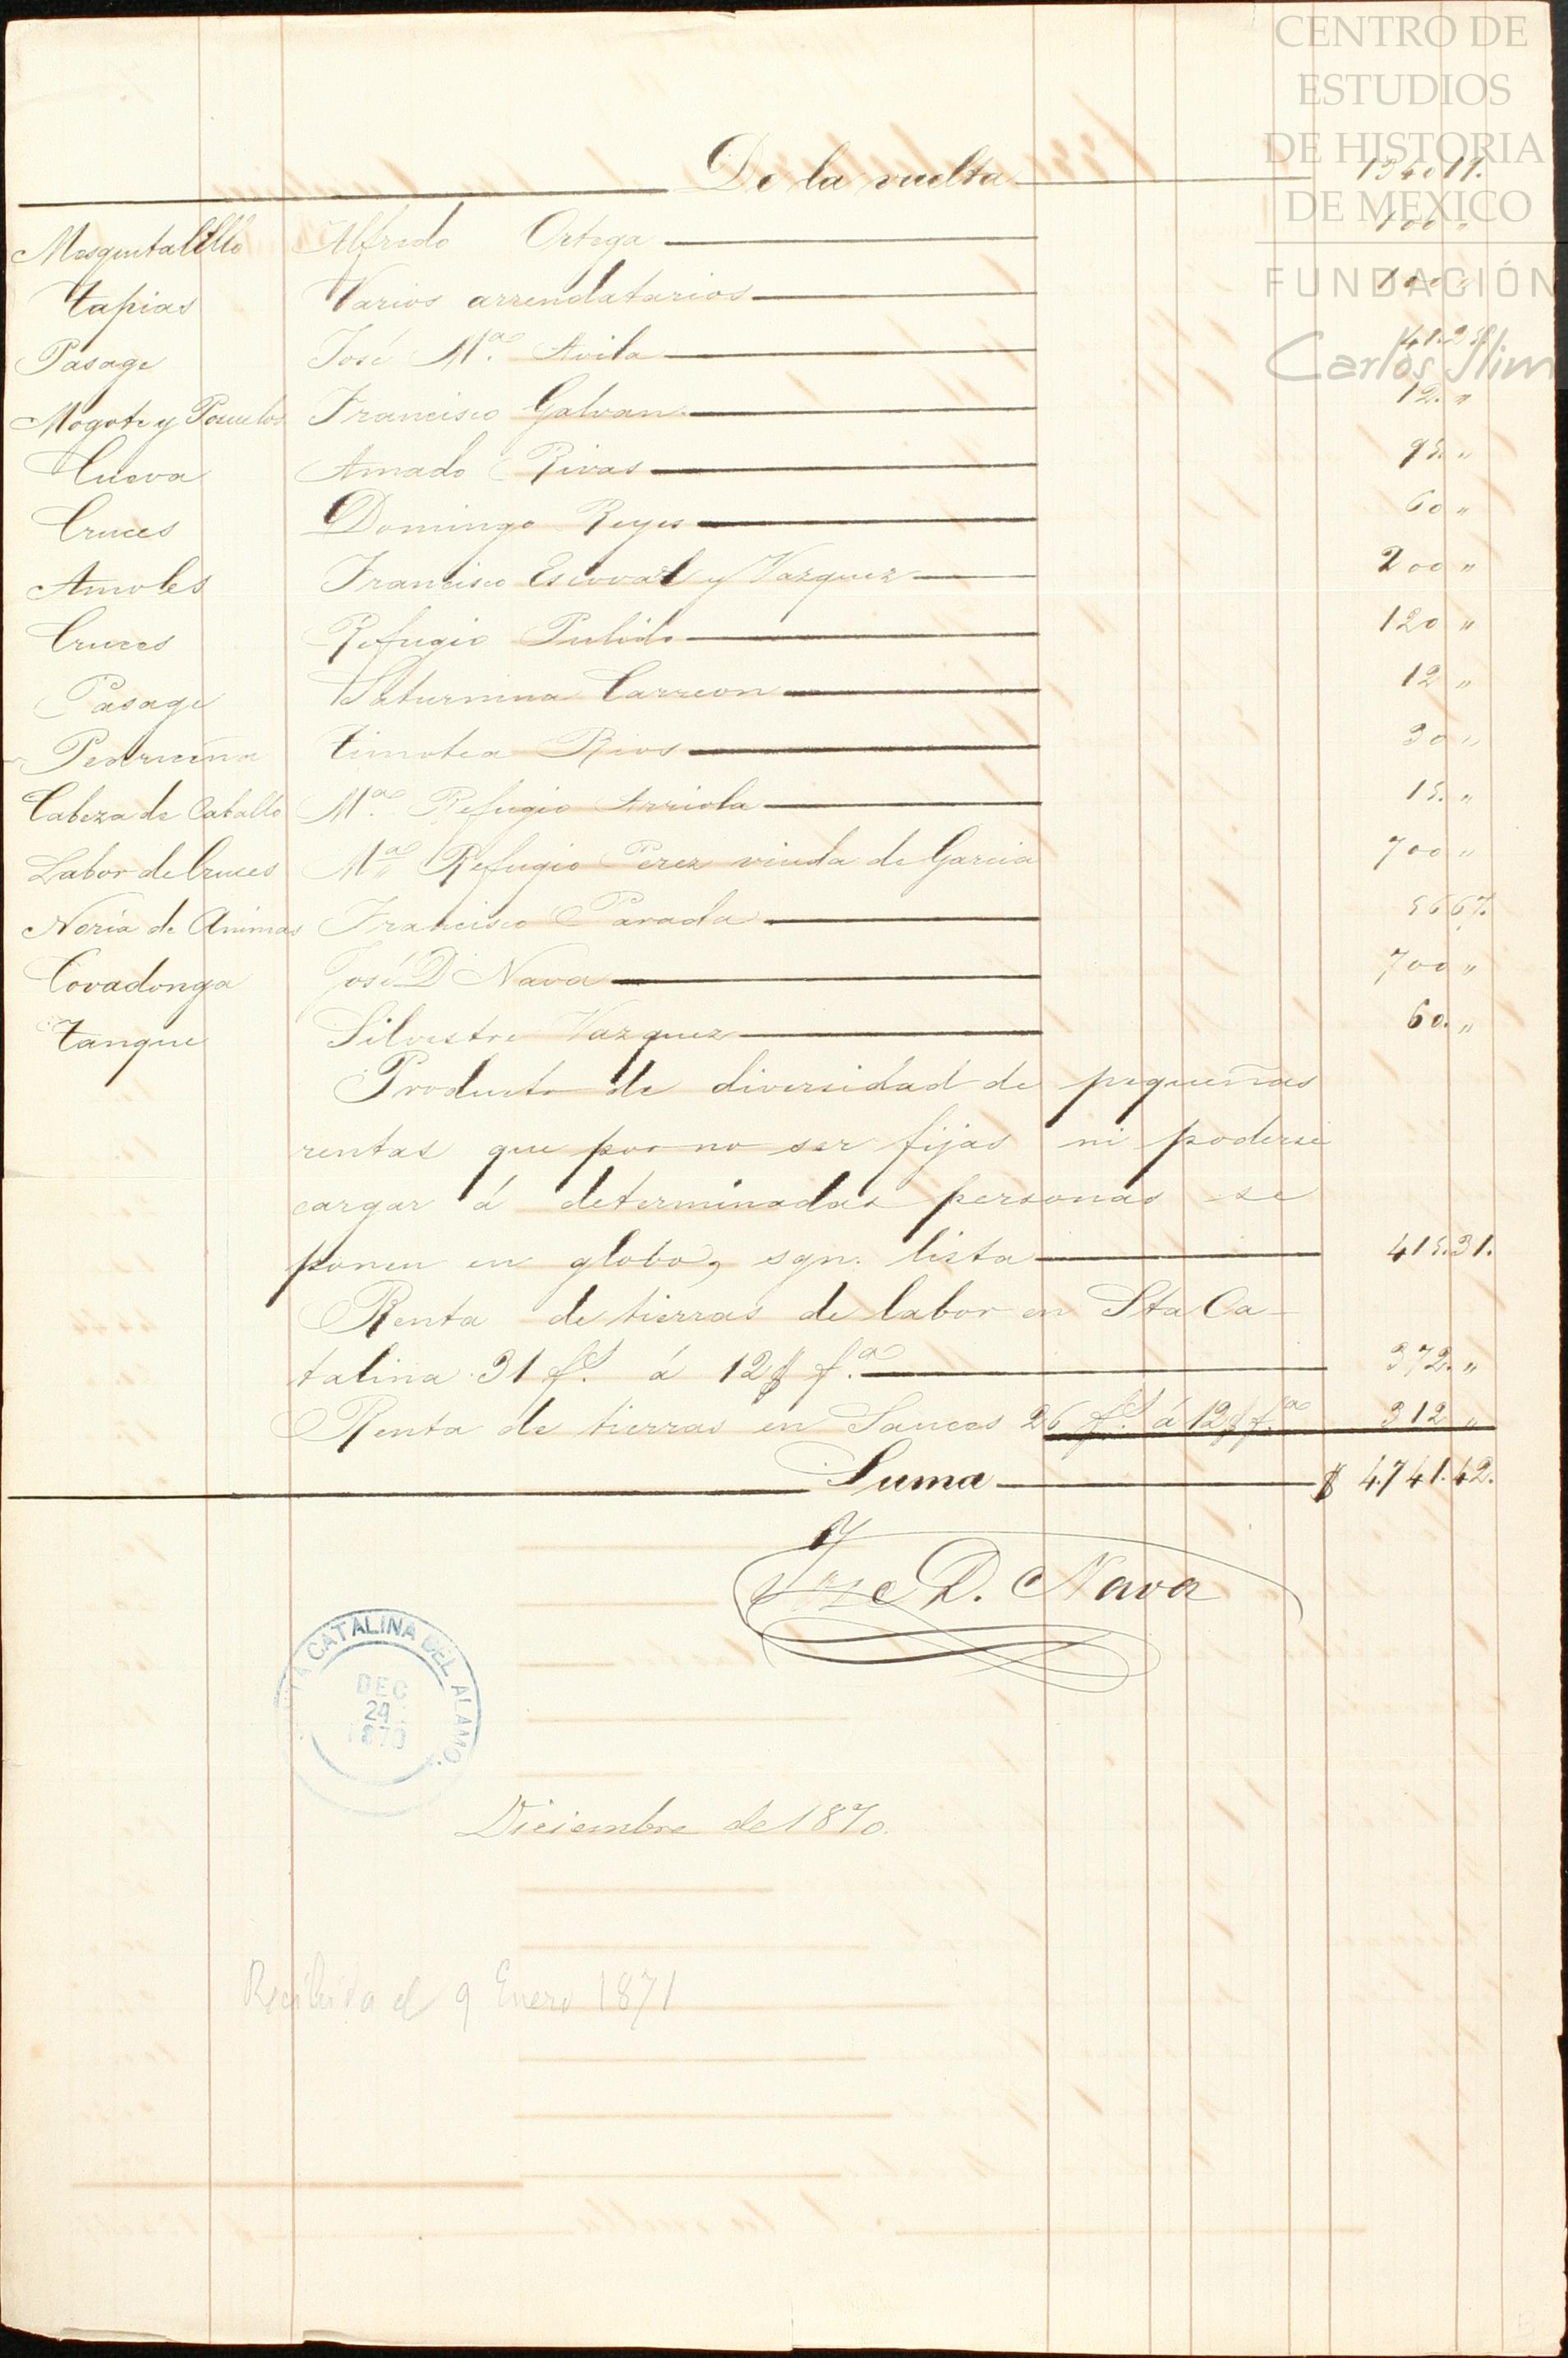 CENTRO DE
ESTUDIOS
DE HISTORIA
DE MEXICO
FUNDACIÓN
Carlos Slim
De la vuelta 1340 19.
Mesquitalillo Alfredo Ortega 100 "
Tapias Varios arrendatarios 100 "
Pasage José Ma. Avila 41.25
Mogote y Pozuelos Francisco Galvan 12. "
Cueva Amado Rivas 95. "
Cruces Domingo Reyes 60 "
Amoles Francisco Escovar y Vazquez 200 "
Cruces Refugio Pulido 120 "
Pasage Saturnina Carreon 12 "
Pedriceña Timotea Rios 30 "
Cabeza de Caballo Ma. Refugio Arriola 15. "
Labor de Cruces Ma. Refugio Perez viuda de Garcia 700 "
Noria de Animas Francisco Parada 56 67.
Covadonga José D Nava 700 "
Tanque Silvestre Vazquez 60. "
Producto de diversidad de pequeñas
rentas que por no ser fijas ni poderse
cargar á determinadas personas se
ponen en globo, sgn. lista 415.31.
Renta de tierras de labor en Sta Ca-
talina 31 fs. á 12$ fa. 372. "
Renta de tierras en Sauces 26 fs. á 12$ fa. 312 "
Suma $ 4.741.42.
Jose D. Nava
SANTA CATALINA DEL ALAMO.
DEC
24
1870
Diciembre de 1870.
Recibida el 9 Enero 1871